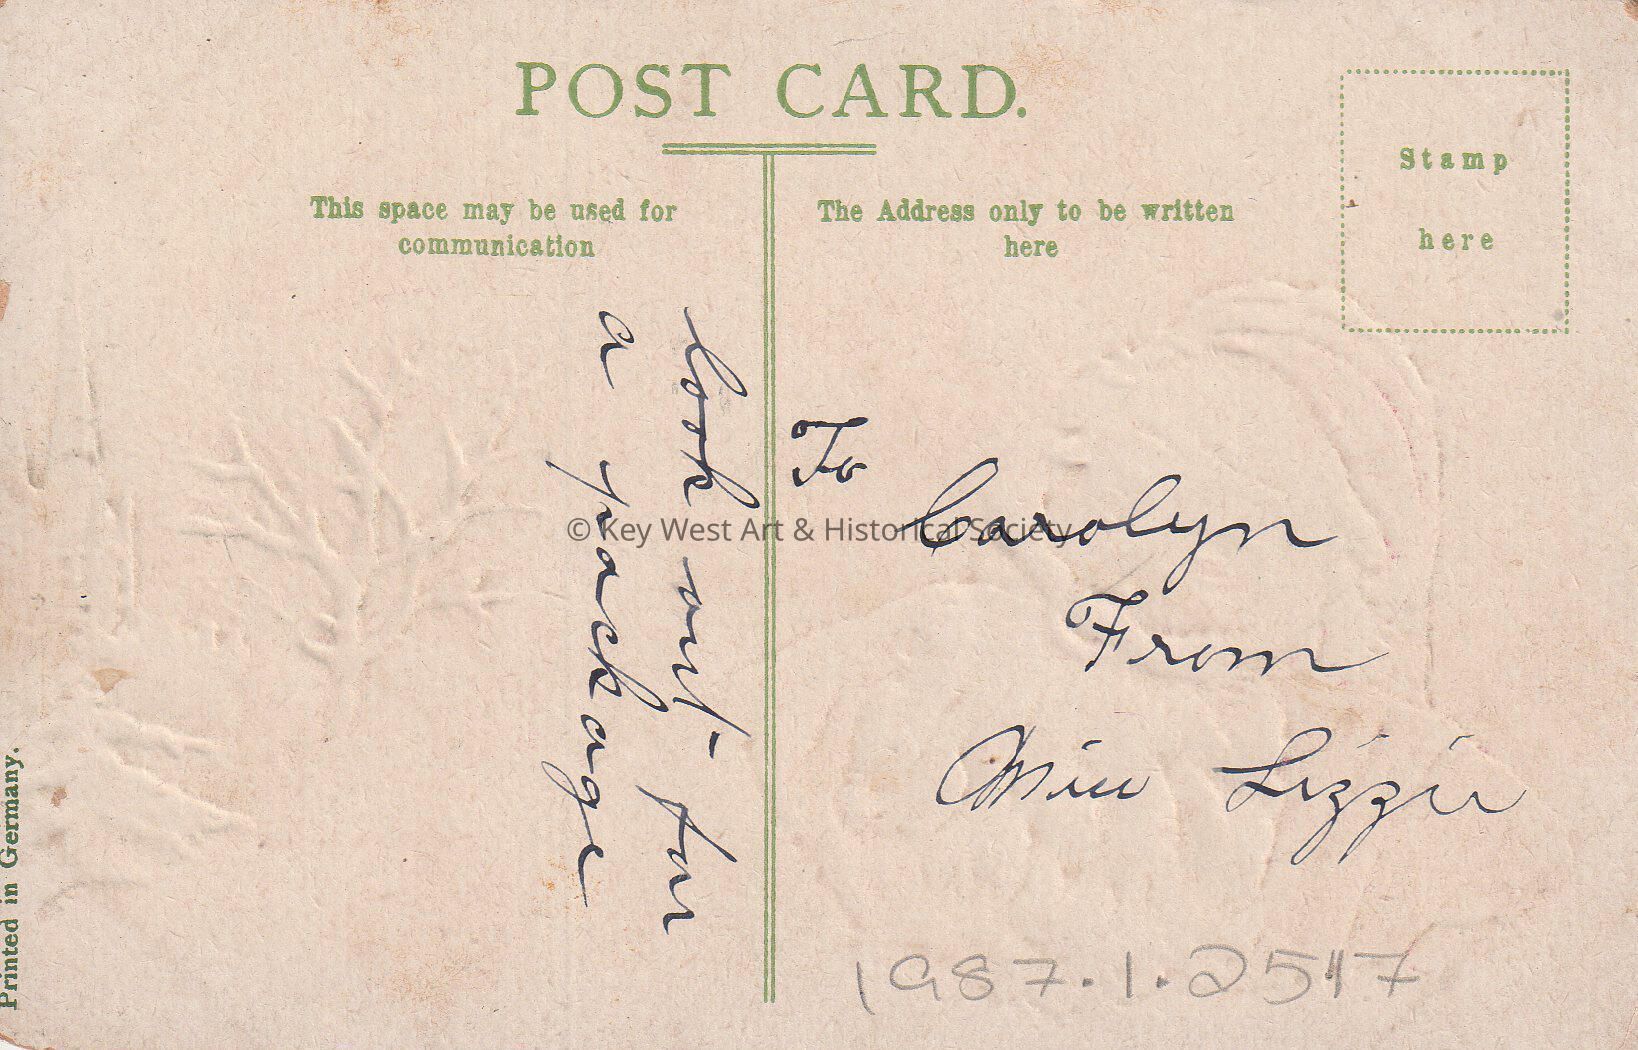 POST CARD.
This space may be used for
communication
The Address only to be written
here
Stamp
here
look out for
a package
To
Carolyn
From
Miss Lizzie
© Key West Art & Historical Society
1987.1.2517
Printed in Germany.